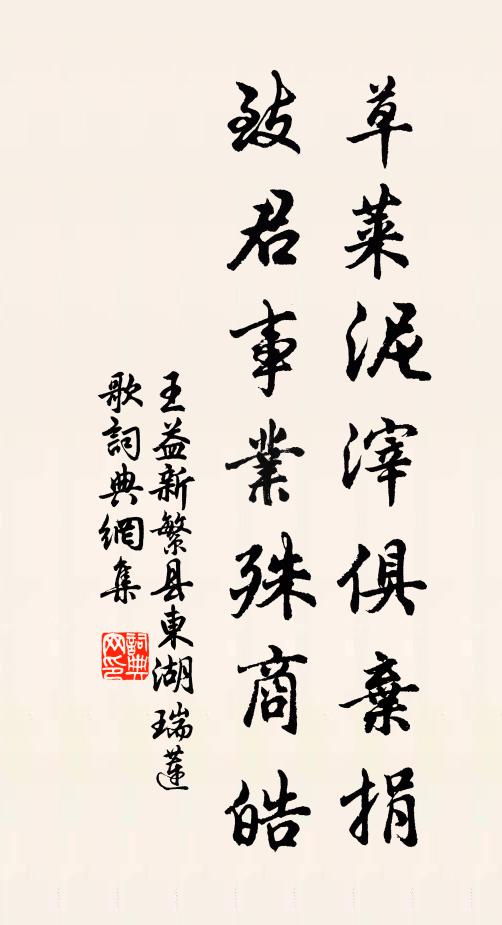 草萊泥滓俱棄捐
致君事業殊商皓
王益新繁县東湖瑞蓮
歌詞典網集
詞典
网印